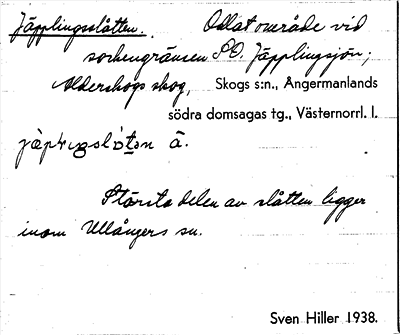 Jäpplingsslåtten. Odlat område vid
sockengränsen S.O. Jäpplingsjön;
Aldershogs skog, Skogs s:n., Ångermanlands
södra domsagas tg., Västernorrl. l.
Största delen av slåtten ligger
inom Ullångers sn.
Sven Hiller 1938.